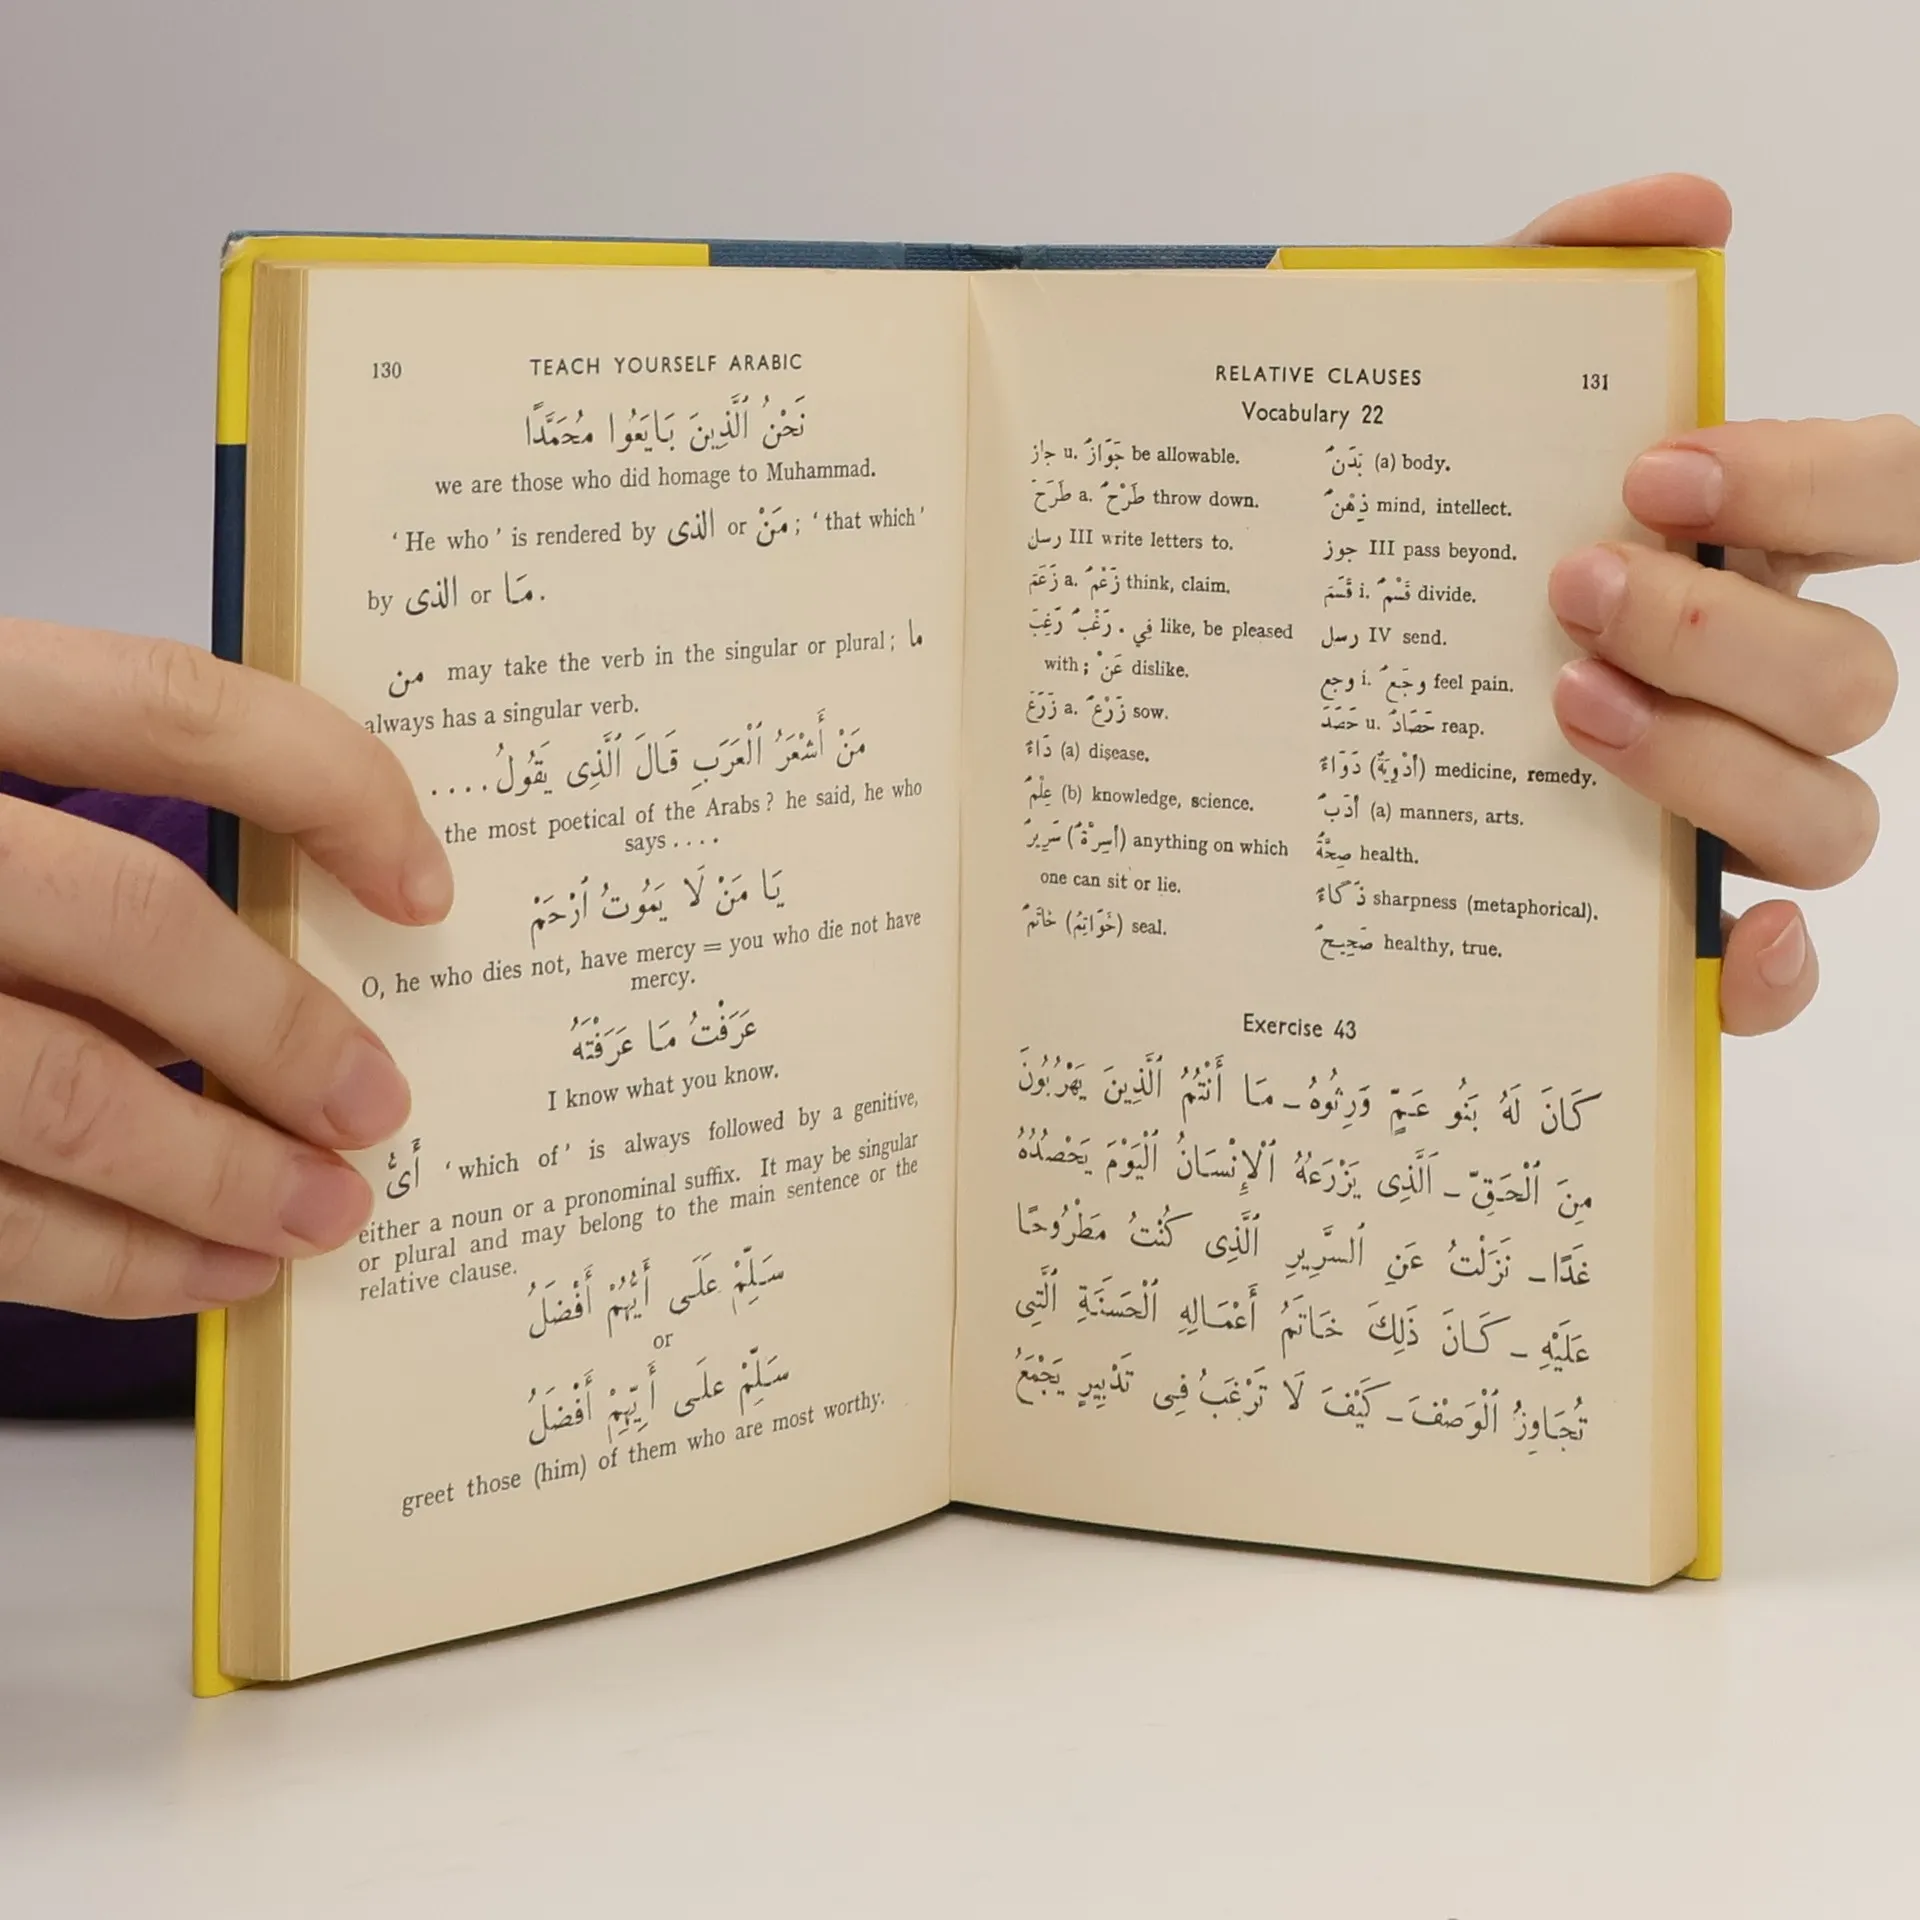 130 TEACH YOURSELF ARABIC
نَحْنُ ٱلَّذِينَ بَايَعُوا مُحَمَّدًا
we are those who did homage to Muhammad.
‘ He who ’ is rendered by الذى or مَنْ ; ‘ that which ’
by الذى or مَا .
من may take the verb in the singular or plural ; ما
always has a singular verb.
مَنْ أَشْعَرُ ٱلْعَرَبِ قَالَ ٱلَّذِى يَقُولُ....
the most poetical of the Arabs? he said, he who
says . . . .
يَا مَنْ لَا يَمُوتُ ٱرْحَمْ
O, he who dies not, have mercy = you who die not have
mercy.
عَرَفْتُ مَا عَرَفْتَهُ
I know what you know.
أَىُّ ‘ which of ’ is always followed by a genitive,
either a noun or a pronominal suffix. It may be singular
or plural and may belong to the main sentence or the
relative clause.
سَلِّمْ عَلَى أَيُّهُمْ أَفْضَلُ
or
سَلِّمْ عَلَى أَيِّهِمْ أَفْضَلُ
greet those (him) of them who are most worthy.
RELATIVE CLAUSES 131
Vocabulary 22
جاز u. جَوَازٌ be allowable.
طَرَحَ a. طَرْحٌ throw down.
رسل III write letters to.
زَعَمَ a. زَعْمٌ think, claim.
رَغِبَ رَغْبٌ . فِي like, be pleased
with ; عَنْ dislike.
زَرَعَ a. زَرْعٌ sow.
دَاءٌ (a) disease.
عِلْمٌ (b) knowledge, science.
سَرِيرٌ (أَسِرَّةٌ) anything on which
one can sit or lie.
خَاتَمٌ (خَوَاتِمُ) seal.
بَدَنٌ (a) body.
ذِهْنٌ mind, intellect.
جوز III pass beyond.
قَسَمَ i. قَسْمٌ divide.
رسل IV send.
وجع i. وَجَعٌ feel pain.
حَصَدَ u. حَصَادٌ reap.
دَوَاءٌ (أَدْوِيَةٌ) medicine, remedy.
أَدَبٌ (a) manners, arts.
صِحَّةٌ health.
ذَكَاءٌ sharpness (metaphorical).
صَحِيحٌ healthy, true.
Exercise 43
كَانَ لَهُ بَنُو عَمٍّ وَرِثُوهُ ـ مَا أَنْتُمُ ٱلَّذِينَ يَهْرُبُونَ
مِنَ ٱلْحَقِّ ـ اَلَّذِى يَزْرَعُهُ ٱلْإِنْسَانُ ٱلْيَوْمَ يَحْصُدُهُ
غَدًا ـ نَزَلْتُ عَنِ ٱلسَّرِيرِ ٱلَّذِى كُنْتُ مَطْرُوحًا
عَلَيْهِ ـ كَانَ ذَلِكَ خَاتَمُ أَعْمَالِهِ ٱلْحَسَنَةِ ٱلَّتِى
تُجَاوِزُ ٱلْوَصْفَ ـ كَيْفَ لَا تَرْغَبُ فِى تَدْبِيرٍ يَجْمَعُ